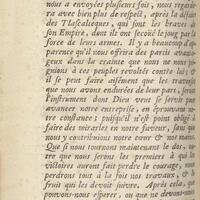 nous a envoyées plusieurs fois, nous regarde-
ra avec bien plus de respect, après la défaite
des Tlascaltéques, qui sont les braves de
son Empire, dont ils ont secoüé le joug par la
force de leurs armes. Il y a beaucoup d'ap-
parence qu'il nous offrira des partis avanta-
geux dans la crainte que nous ne nous joi-
gnions à ces peuples revoltés contre lui: &
il se peut faire aisément que les travaux
que nous avons endurez de leur part, seront
l'instrument dont Dieu veut se servir pour
avancer notre entreprise, en éprouvant no-
tre constance; puisqu'il n'est point obligé à
faire des miracles en notre faveur, sans que
nous y contribuions notre cœur & nos mains.
Que si nous tournons maintenant le dos, ou-
tre que nous serons les premiers à qui les
victoires auront fait perdre le courage, nous
perdrons tout à la fois nos travaux, & le
fruit qui les devoit suivre. Après cela, que
pouvons-nous esperer, ou que ne devons-nous